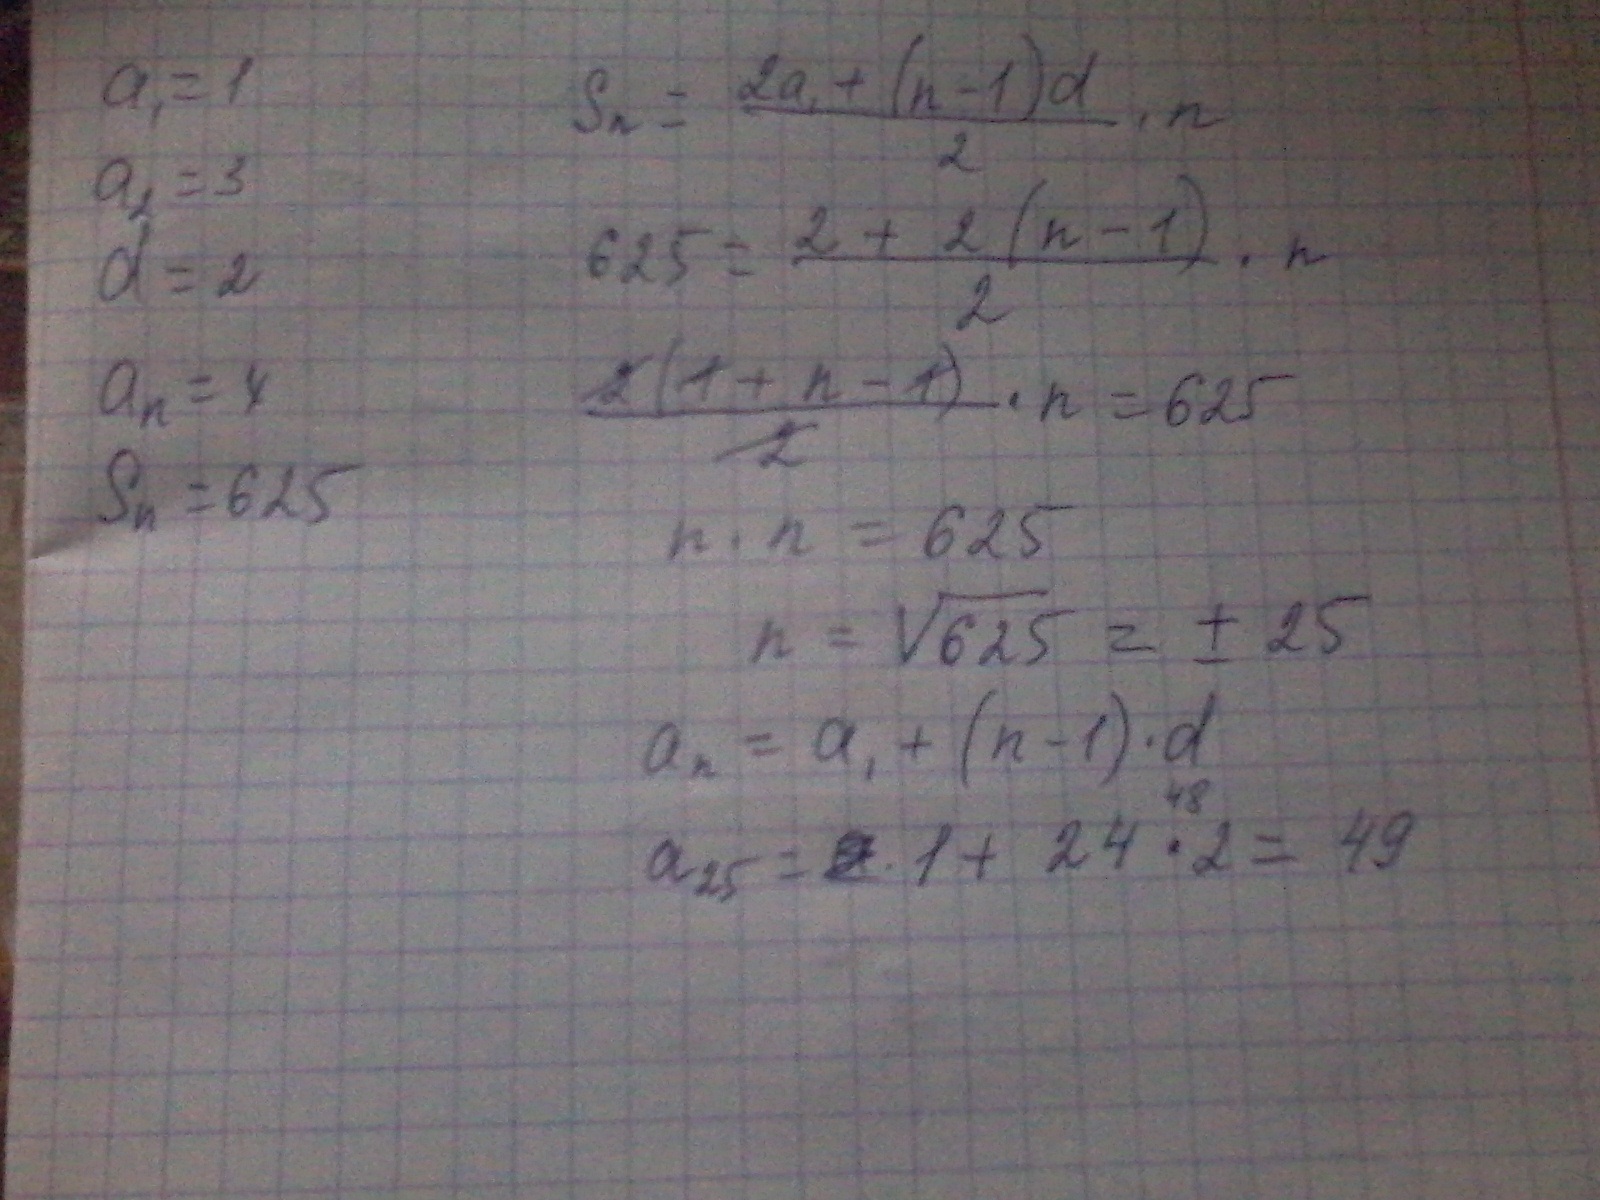 a₁ = 1
a₂ = 3
d = 2
aₙ = 4
Sₙ = 625
Sₙ = (2a₁ + (n-1)d)/2 · n
625 = (2 + 2(n-1))/2 · n
2(1 + n - 1)/2 · n = 625
n · n = 625
n = √625 = ± 25
aₙ = a₁ + (n-1) · d
48
a₂₅ = 1 + 24 · 2 = 49